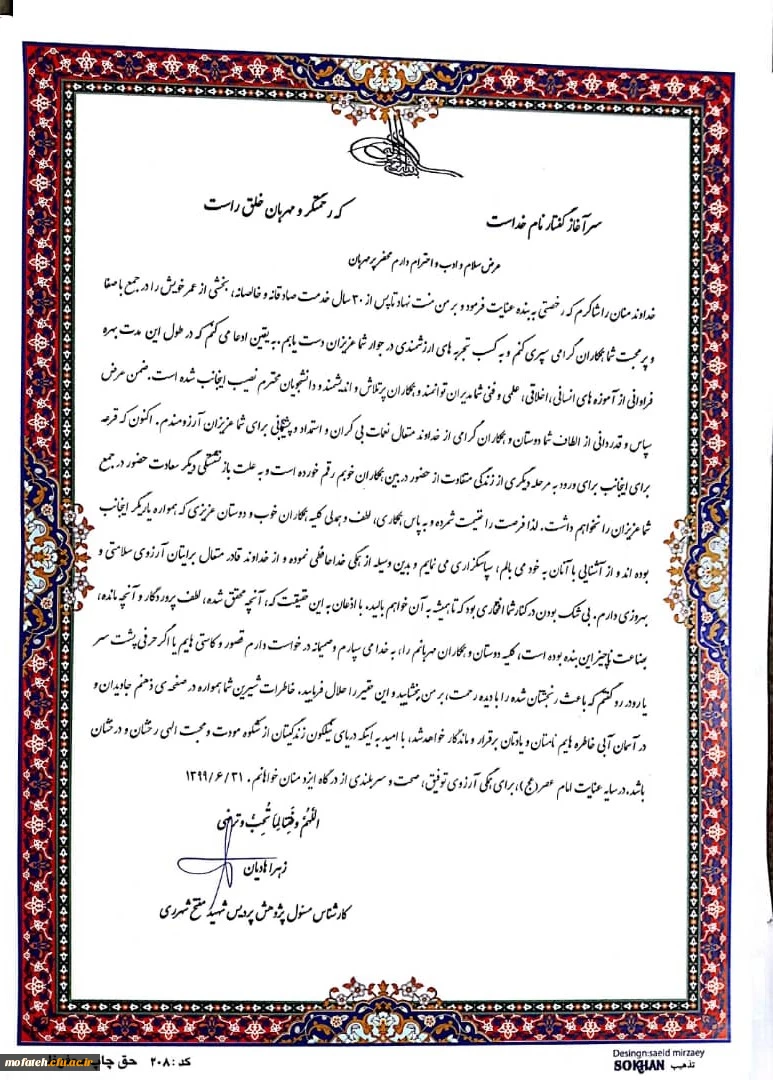 سرآغاز گفتار نام خداست
که رحمتگر و مهربان خلق راست
عرض سلام و ادب و احترام دارم محضر پرمهرتان
خداوند منان را شاکرم که رخصتی به بنده عنایت فرمود و بر من منت نهاد تا پس از ۳۰ سال خدمت صادقانه و خالصانه، بخشی از عمر خویش را در جمع با صفا
و پر محبت شما همکاران گرامی سپری کنم و به کسب تجربه های ارزشمندی در جوار شما عزیزان دست یابم. به یقین ادعا می کنم که در طول این مدت بهره
فراوانی از آموزه های انسانی، اخلاقی، علمی و فنی شما مدیران توانمند و همکاران پرتلاش و اندیشمند و دانشجویان محترم نصیب اینجانب شده است. ضمن عرض
سپاس و قدردانی از الطاف شما دوستان و همکاران گرامی از خداوند متعال نعمات بی کران و استمداد و پشتیبانی برای شما عزیزان آرزومندم. اکنون که قرعه
برای اینجانب برای ورود به مرحله دیگری از زندگی متفاوت از حضور در بین همکاران خوبم رقم خورده است و به علت بازنشستگی دیگر سعادت حضور در جمع
شما عزیزان را نخواهم داشت. لذا فرصت را غنیمت شمرده و به پاس همکاری، لطف و همدلی کلیه همکاران خوب و دوستان عزیزی که همواره یاریگر اینجانب
بوده اند و از آشنایی با آنان به خود می بالم، سپاسگزاری می نمایم و بدین وسیله از همگی خداحافظی نموده و از خداوند قادر متعال برایتان آرزوی سلامتی و
بهروزی دارم. بی شک بودن در کنار شما افتخاری بود که تا همیشه به آن خواهم بالید. با اذعان به این حقیقت که، آنچه محقق شده، لطف پروردگار و آنچه مانده،
بضاعت ناچیز این بنده بوده است، کلیه دوستان و همکاران مهربانم را، به خدا می سپارم و صمیمانه درخواست دارم قصور و کاستی هایم یا اگر حرفی پشت سر
یا رو در رو گفتم که باعث رنجشتان شده را با دیده رحمت، بر من ببخشایید و این حقیر را حلال فرمایید. خاطرات شیرین شما همواره در صفحه ی ذهنم جاویدان و
در آسمان آبی خاطره هایم نامتان و یادتان برقرار و ماندگار خواهد شد، با امید به اینکه دریای نیلگون زندگیتان از شکوه مودت و محبت الهی رخشان و درخشان
باشد. در سایه عنایت امام عصر (عج)، برای همگی آرزوی توفیق، صحت و سربلندی از درگاه ایزد منان خواهانم. ۱۳۹۹/۶/۳۱
اللّهُمَّ وَفِّقنا لِما تُحِبُّ وَ ترضی
زهرا هادیان
کارشناس مسئول پژوهش پردیس شهید مفتح شهرری
Desingn:saeid mirzaey
SOKHAN تذهیب
کد : ۲۰۸ حق چاپ
mofateh.cfu.ac.ir